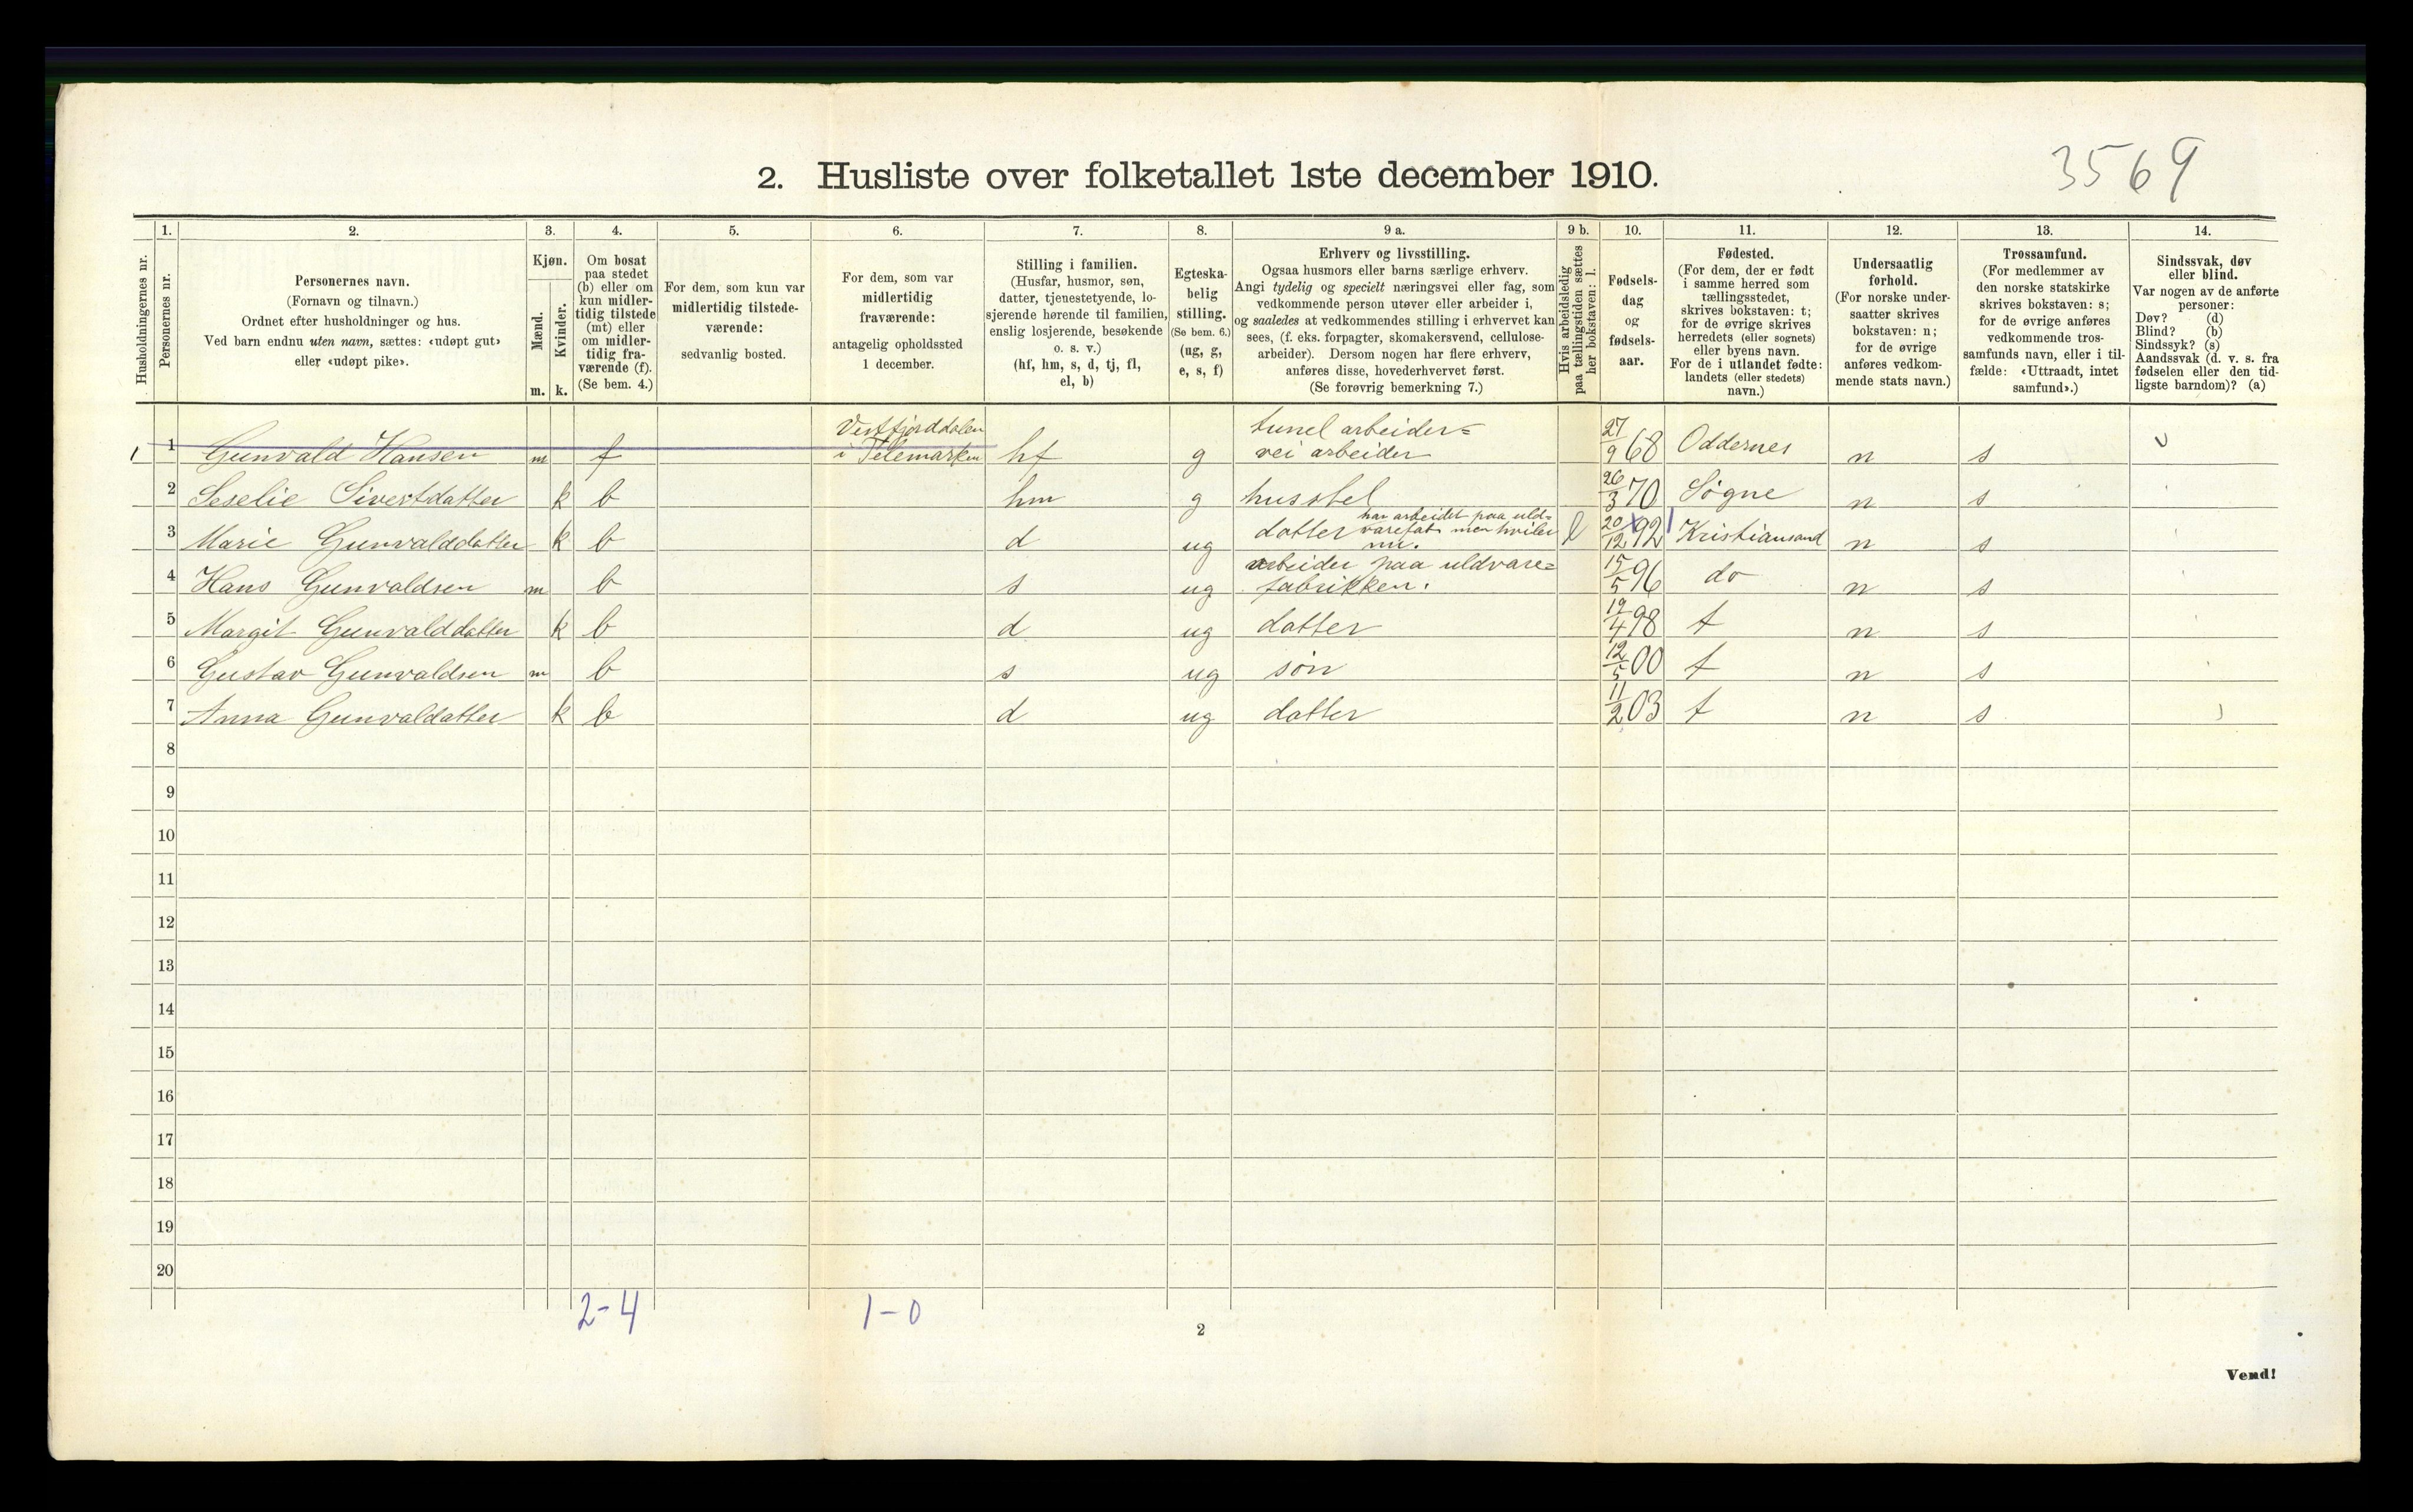 3569
2. Husliste over folketallet 1ste december 1910.
Husholdningernes nr.
1.
Personernes nr.
2.
Personernes navn.
(Fornavn og tilnavn.)
Ordnet efter husholdninger og hus.
Ved barn endnu uten navn, sættes: «udøpt gut»
eller «udøpt pike».
3.
Kjøn.
Mænd.
Kvinder.
m. k.
4.
Om bosat
paa stedet
(b) eller om
kun midler-
tidig tilstede
(mt) eller
om midler-
tidig fra-
værende (f).
(Se bem. 4.)
5.
For dem, som kun var
midlertidig tilstede-
værende:
sedvanlig bosted.
6.
For dem, som var
midlertidig
fraværende:
antagelig opholdssted
1 december.
7.
Stilling i familien.
(Husfar, husmor, søn,
datter, tjenestetyende, lo-
sjerende hørende til familien,
enslig losjerende, besøkende
o. s. v.)
(hf, hm, s, d, tj, fl,
el, b)
8.
Egteska-
belig
stilling.
(Se bem. 6.)
(ug, g,
e, s, f)
9 a.
Erhverv og livsstilling.
Ogsaa husmors eller barns særlige erhverv.
Angi tydelig og specielt næringsvei eller fag, som
vedkommende person utøver eller arbeider i,
og saaledes at vedkommendes stilling i erhvervet kan
sees, (f. eks. forpagter, skomakersvend, cellulose-
arbeider). Dersom nogen har flere erhverv,
anføres disse, hovederhvervet først.
(Se forøvrig bemerkning 7.)
9 b.
Hvis arbeidsledig
paa tællingstiden sættes
her bokstaven: l.
10.
Fødsels-
dag
og
fødsels-
aar.
11.
Fødested.
(For dem, der er født
i samme herred som
tællingsstedet,
skrives bokstaven: t;
for de øvrige skrives
herredets (eller sognets)
eller byens navn.
For de i utlandet fødte:
landets (eller stedets)
navn.)
12.
Undersaatlig
forhold.
(For norske under-
saatter skrives
bokstaven: n;
for de øvrige
anføres vedkom-
mende stats navn.)
13.
Trossamfund.
(For medlemmer av
den norske statskirke
skrives bokstaven: s;
for de øvrige anføres
vedkommende tros-
samfunds navn, eller i til-
fælde: «Uttraadt, intet
samfund».)
14.
Sindssvak, døv
eller blind.
Var nogen av de anførte
personer:
Døv? (d)
Blind? (b)
Sindssyk? (s)
Aandssvak (d. v. s. fra
fødselen eller den tid-
ligste barndom)? (a)
Vestfjorddalen tunel arbeider=
1 1 Gunvald Hansen m f i Telemarken hf g vei arbeider 27/9 68 Oddernes n s
2 Seselie Sivertdatter k b hm g husstel 26/3 70 Søgne n s
har arbeidet paa uld-
3 Marie Gunvalddatter k b d ug datter varefab men hviler l 20/12 92 Kristiansand n s
nu.
arbeider paa uldvare=
4 Hans Gunvaldsen m b s ug fabrikken. 15/5 96 do n s
5 Margit Gunvalddatter k b d ug datter 19/4 98 t n s
6 Gustav Gunvaldsen m b s ug søn 12/5 00 t n s
7 Anna Gunvaldatter k b d ug datter 11/2 03 t n s
8
9
10
11
12
13
14
15
16
17
18
19
20
2-4 1-0
2
Vend!